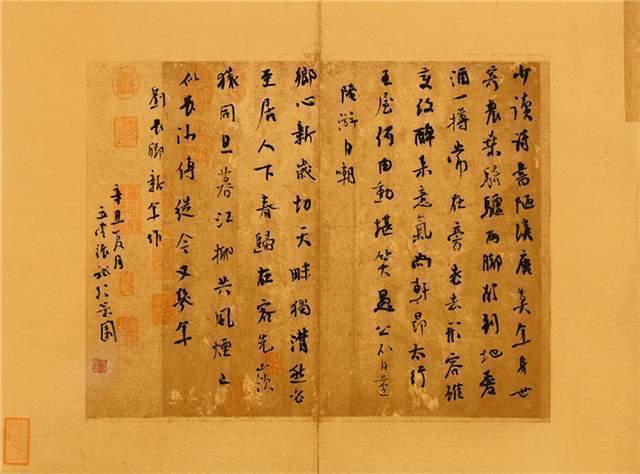 少读诗書陋漢唐莫年身世
寄農桑騎驢兩脚欲到地愛
酒一樽常在旁老去形容雖
變改醉来意氣尚軒昂太行
王屋何由動堪笑愚公不自量
陸游自嘲
鄉心新歲切天畔獨潸然老
至居人下春歸在客先嶺
猿同旦暮江柳共風煙已
似長沙傅從今又幾年
劉長卿新年作
辛丑月
張於京園